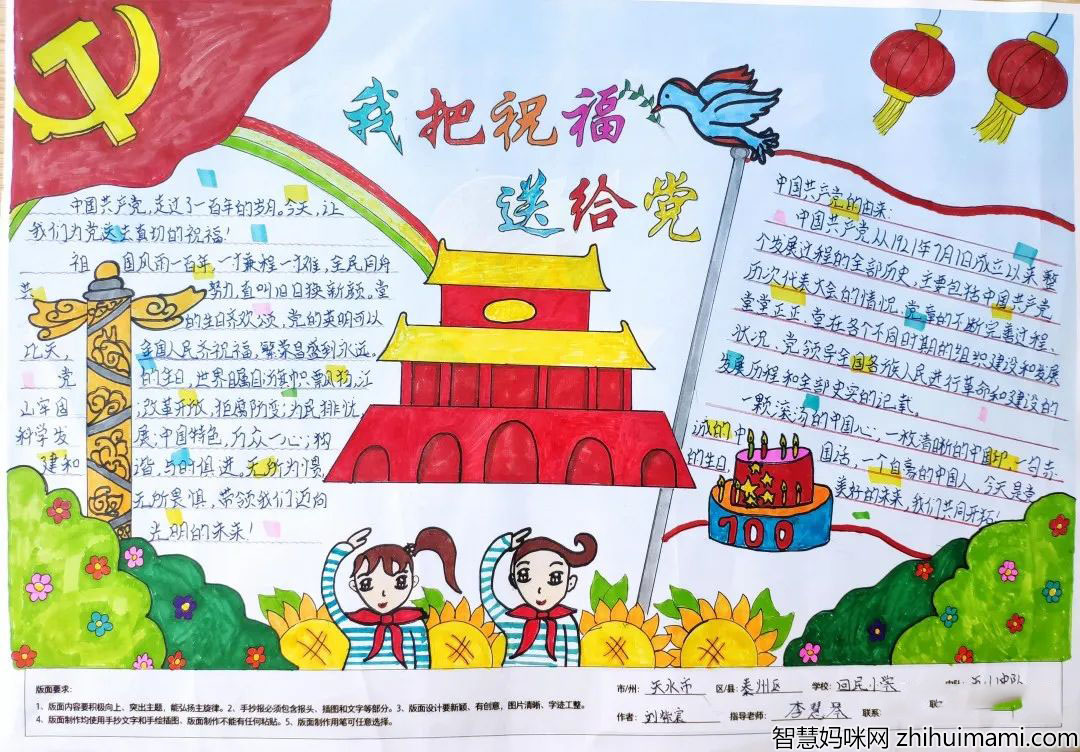 我把祝福
送给党
中国共产党,走过了一百年的岁月。今天,让
我们为党送上真切的祝福!
祖 国风雨一百年,一才兼程一才难,全民同舟
共 努力,直叫旧日换新颜。党
的生日齐欢颂,党的英明可以
比天, 全国人民齐祝福,繁荣昌盛到永远。
党 的生日,世界瞩目,旗帜飘扬,江
山牢固 改革开放,拒腐防变;为民排忧,
科学发 展,中国特色,万众一心;构
建和 谐,与时俱进,无所为惧,
无所畏惧,带领我们迈向
光明的未来!
中国共产党的由来:
中国共产党从1921年7月1日成立以来整
个发展过程的全部历史,主要包括中国共产党
历次代表大会的情况,党章的不断完善过程,
堂堂正正,堂在各个不同时期的组织建设和发展
状况,党领导全国各族人民进行革命和建设的
发展历程和全部史实的记载。
一颗滚汤的中国心;一枚清晰的中国印,一句
诚的中 国话,一个自喜的中国人,今天是党
的生日, 美好的未来,我们共同开拓!
100
版面要求:
1、版面内容要积极向上、突出主题,能弘扬主旋律。2、手抄报必须包含报头、插图和文字等部分。3、版面设计要新颖、有创意,图片清晰、字迹工整。
4、版面制作均使用手抄文字和手绘插图、版面制作不能有任何粘贴。5、版面制作用笔可任意选择。
市/州: 天水市 区/县: 秦州区 学校: 回民小学
作者: 指导老师: 李慧琴 联系
智慧妈咪网 zhihuimami.com